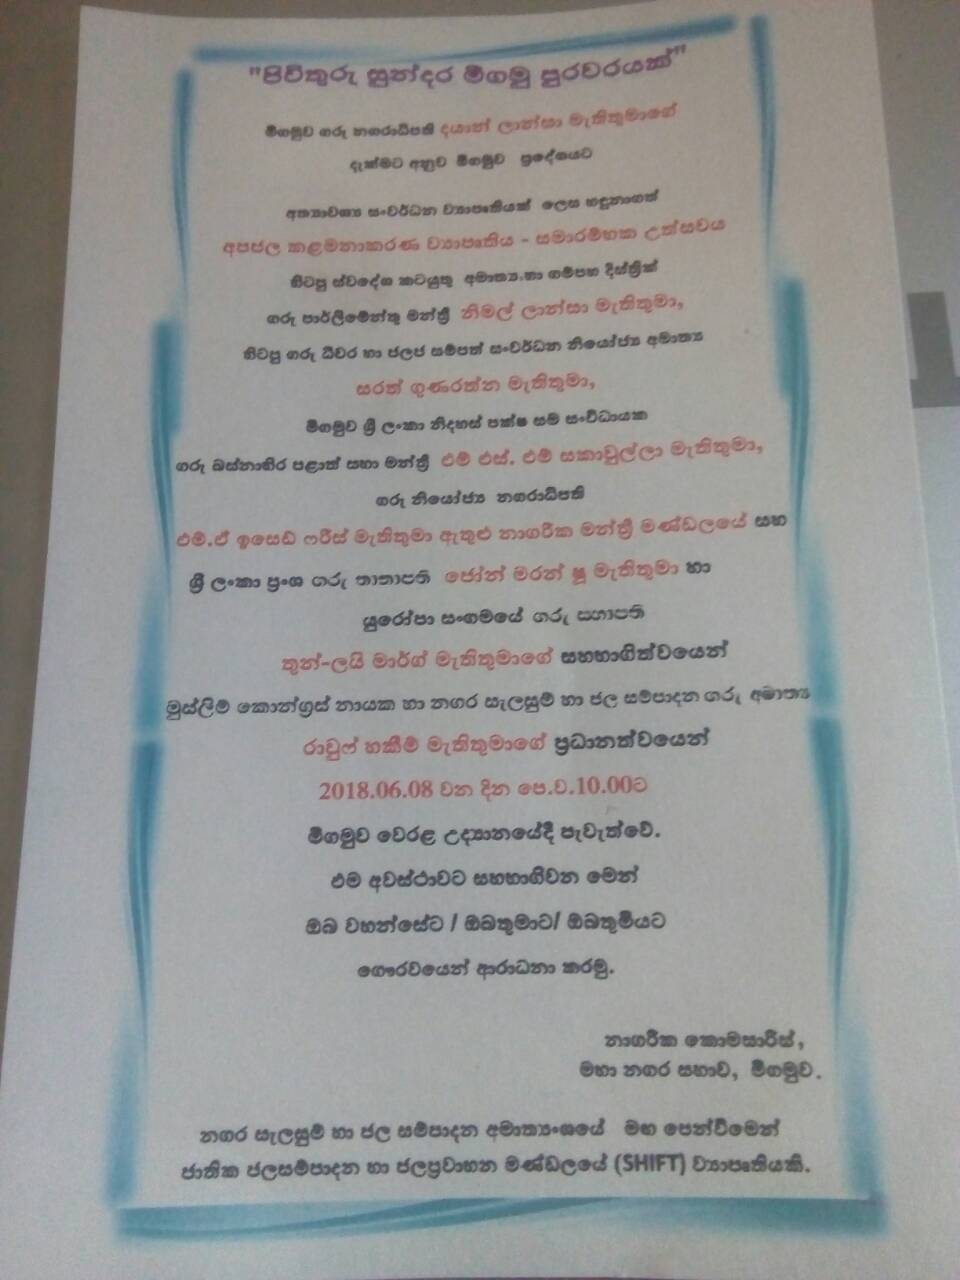 "පිවිතුරු සුන්දර මීගමු පුරවරයක්"
මීගමුව ගරු නගරාධිපති දයාන් ලාන්සා මැතිතුමාගේ
දැක්මට අනුව මීගමුව ප්‍රදේශයට
අත්‍යාවශ්‍ය සංවර්ධන ව්‍යාපෘතියක් ලෙස හඳුනාගත්
අපජල කළමනාකරණ ව්‍යාපෘතිය - සමාරම්භක උත්සවය
හිටපු ස්වදේශ කටයුතු අමාත්‍ය.හා ගම්පහ දිස්ත්‍රික්
ගරු පාර්ලිමේන්තු මන්ත්‍රී නිමල් ලාන්සා මැතිතුමා,
හිටපු ගරු ධීවර හා ජලජ සම්පත් සංවර්ධන නියෝජ්‍ය අමාත්‍ය
සරත් ගුණරත්න මැතිතුමා,
මීගමුව ශ්‍රී ලංකා නිදහස් පක්ෂ සම සංවිධායක
ගරු බස්නාහිර පළාත් සභා මන්ත්‍රී එම් එස්. එම් සකාවුල්ලා මැතිතුමා,
ගරු නියෝජ්‍ය නගරාධිපති
එම්.ඒ ඉසෙඩ් ෆරීස් මැතිතුමා ඇතුළු නාගරික මන්ත්‍රී මණ්ඩලයේ සහ
ශ්‍රී ලංකා ප්‍රංශ ගරු තානාපති ජෝන් මරන් ෂූ මැතිතුමා හා
යුරෝපා සංගමයේ ගරු සභාපති
තුන්-ලයි මාර්ග් මැතිතුමාගේ සහභාගිත්වයෙන්
මුස්ලිම් කොන්ග්‍රස් නායක හා නගර සැලසුම් හා ජල සම්පාදන ගරු අමාත්‍ය
රාවුෆ් හකීම් මැතිතුමාගේ ප්‍රධානත්වයෙන්
2018.06.08 වන දින පෙ.ව.10.00ට
මීගමුව වෙරළ උද්‍යානයේදී පැවැත්වේ.
එම අවස්ථාවට සහභාගිවන මෙන්
ඔබ වහන්සේට / ඔබතුමාට/ ඔබතුමියට
ගෞරවයෙන් ආරාධනා කරමු.
නාගරික කොමසාරිස්,
මහා නගර සභාව, මීගමුව.
නගර සැලසුම් හා ජල සම්පාදන අමාත්‍යංශයේ මඟ පෙන්වීමෙන්
ජාතික ජලසම්පාදන හා ජලප්‍රවාහන මණ්ඩලයේ (SHIFT) ව්‍යාපෘතියකි.